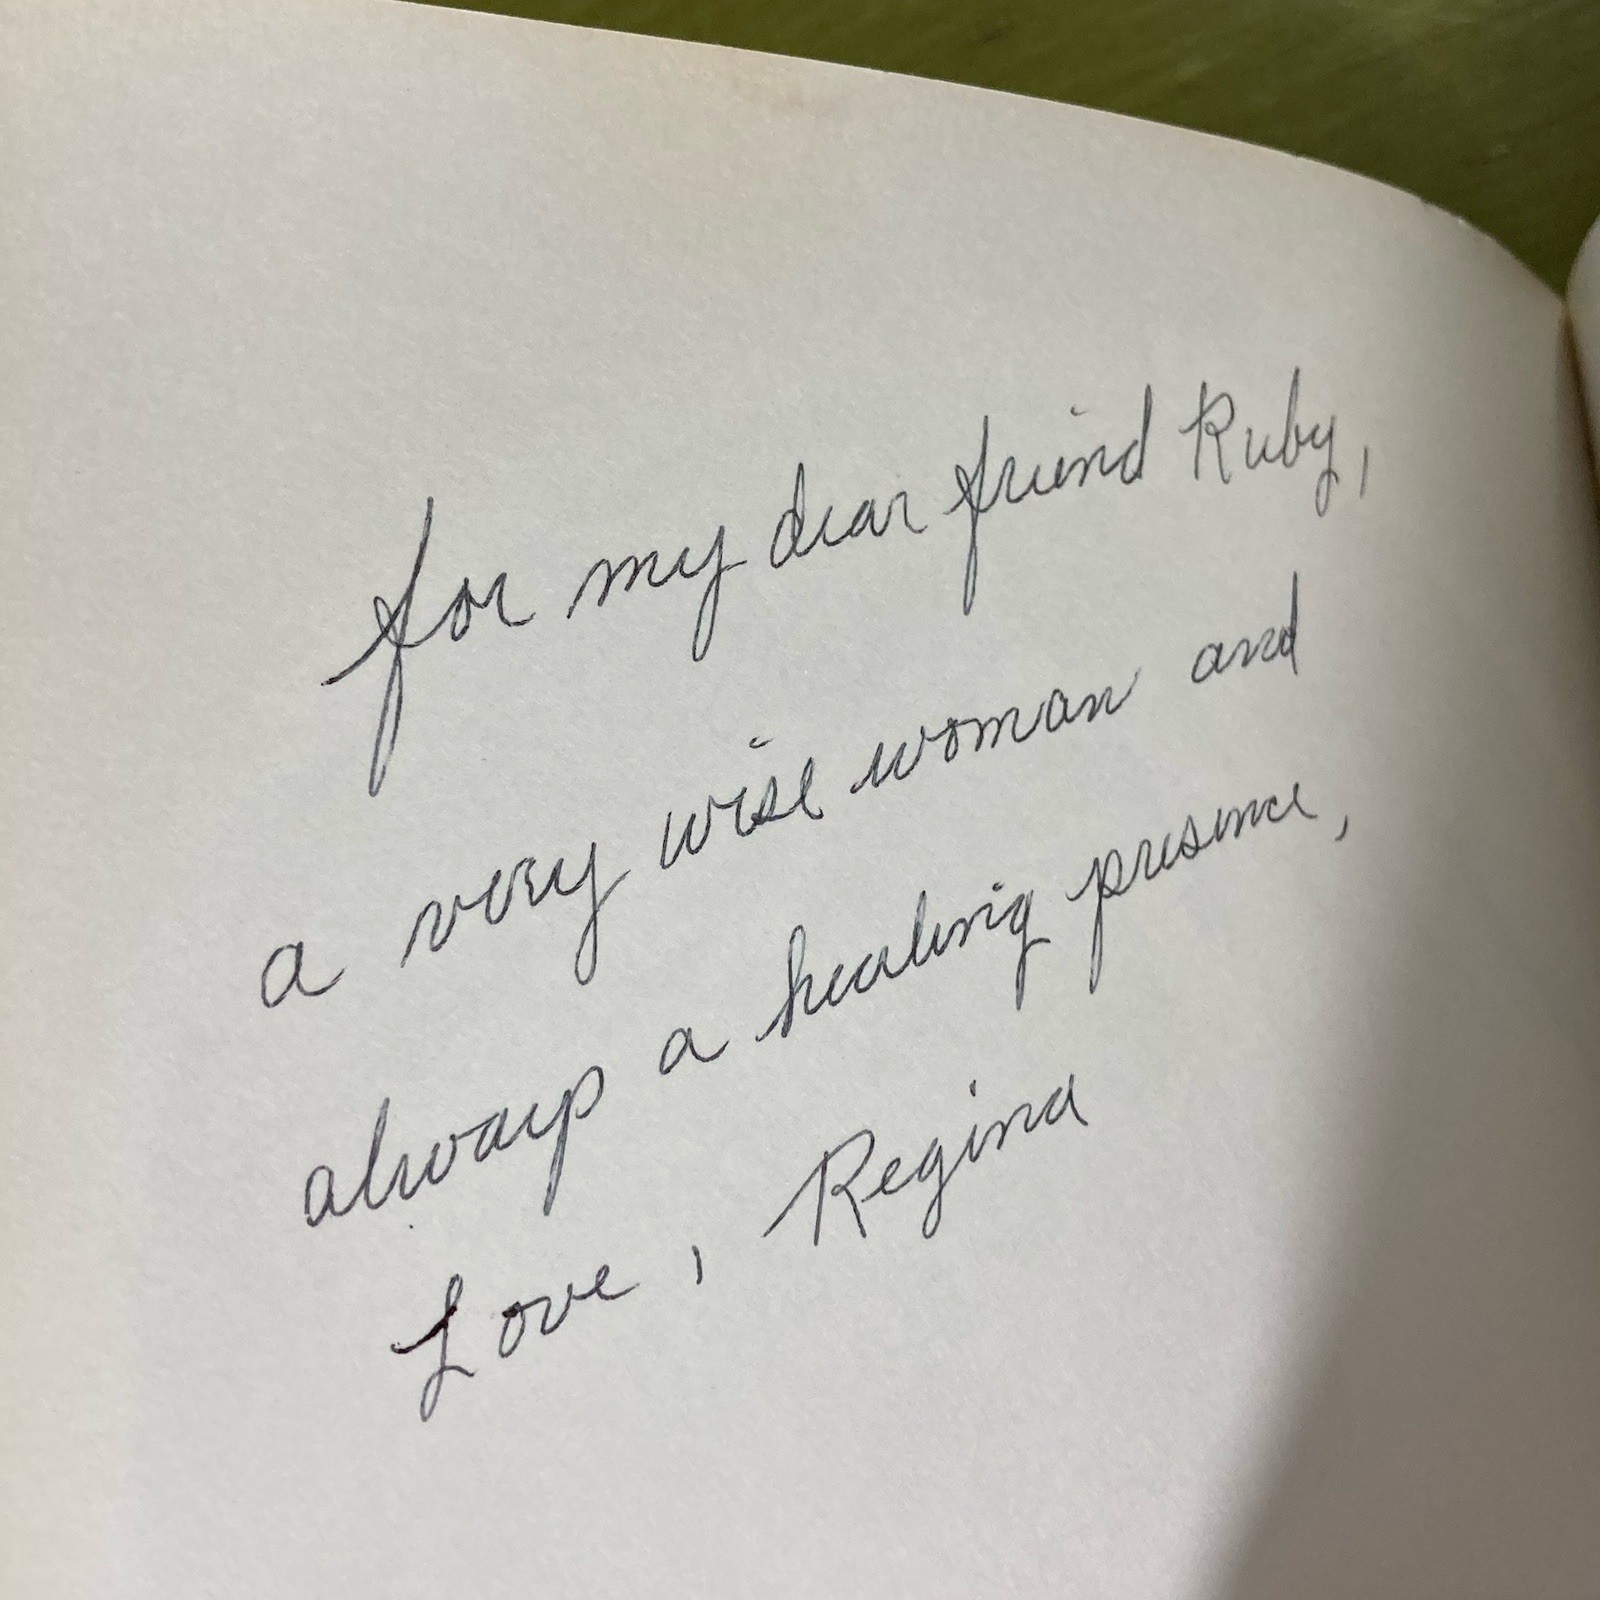 for my dear friend Ruby,
a very wise woman and
always a healing presence,
Love, Regina